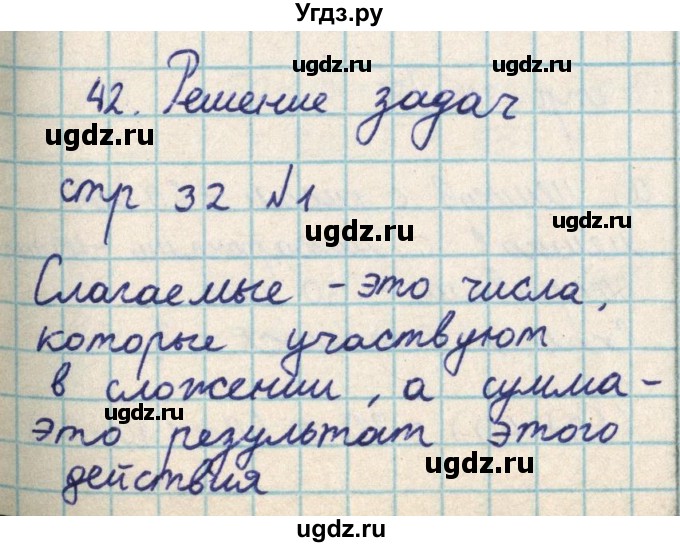 Угдз.ру
ugdz.ru ugdz.ru
42. Решение задач
ugdz.ru ugdz.ru
стр 32 №1
ugdz.ru
Слагаемые - это числа,
ugdz.ru ugdz.ru
которые участвуют
в сложении, а сумма -
ugdz.ru ugdz.ru
это результат этого
ugdz.ru ugdz.ru
действия
ugdz.ru